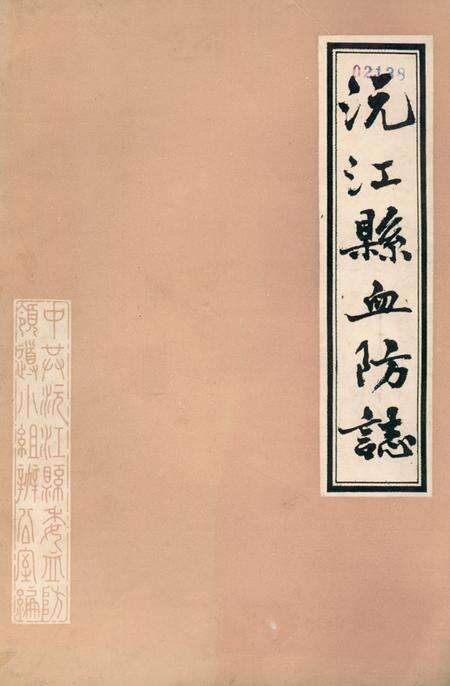 02138
沅江縣血防誌
中共沅江縣委血防
領導小組辦公室編